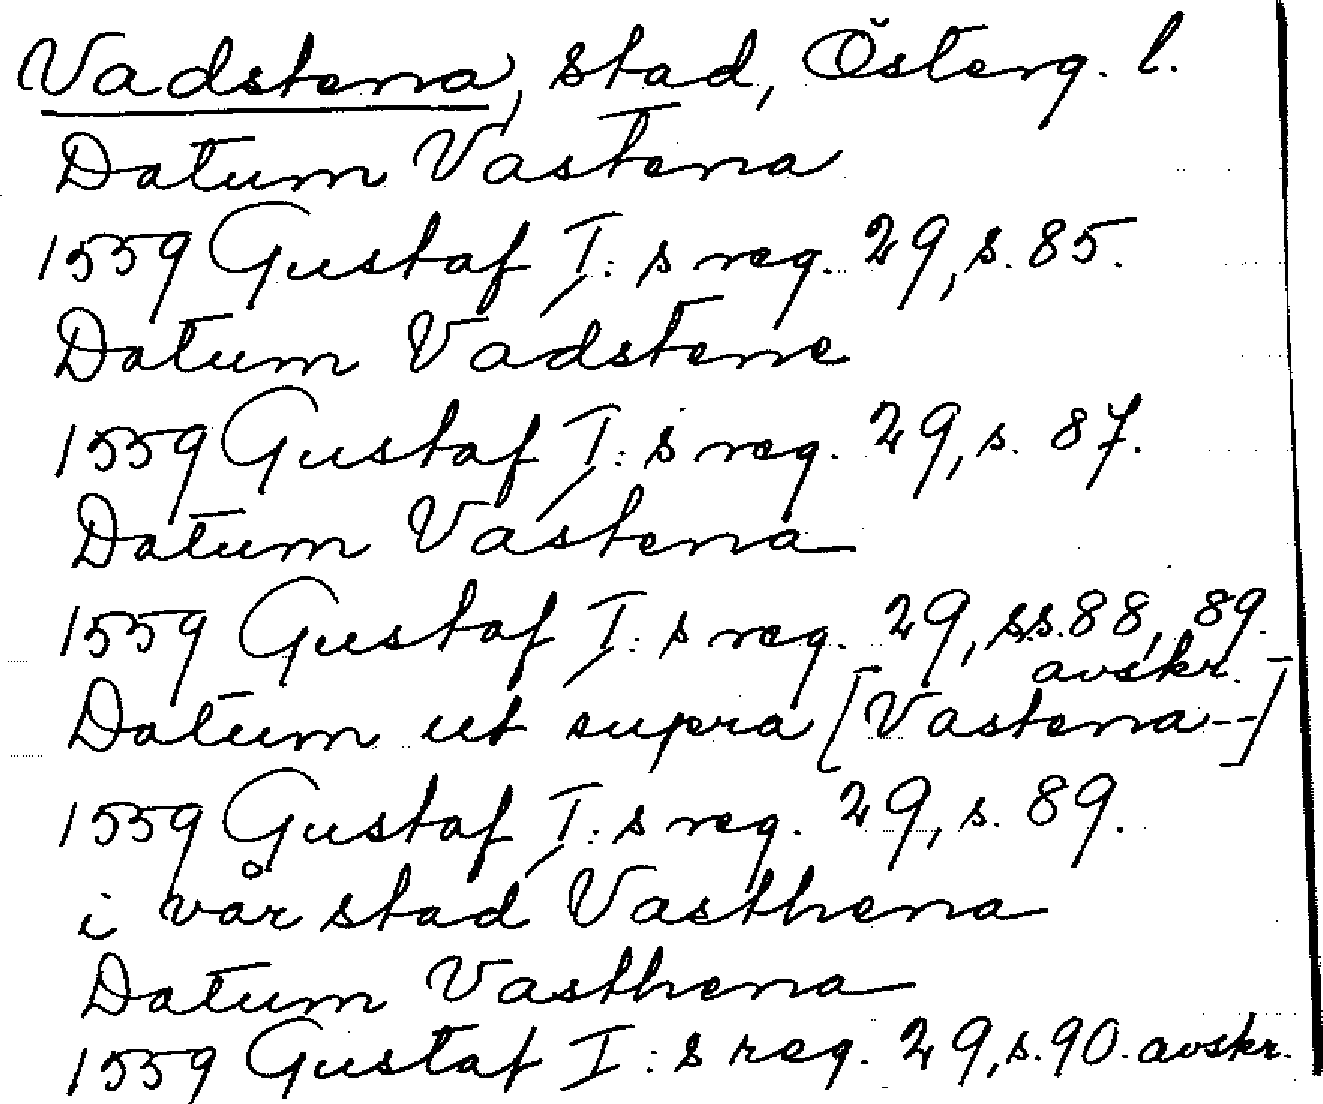 Vadstena, stad, Österg. l.
Datum Vastena
1559 Gustaf I: s reg. 29, s. 85.
Datum Vadstene
1559 Gustaf I: s reg. 29, s. 87.
Datum Vastena
1559 Gustaf I: s reg. 29, ss. 88, 89.
avskr.
Datum ut supra [Vastena--]
1559 Gustaf I: s reg. 29, s. 89.
i vår stad Vasthena
Datum Vasthena
1559 Gustaf I: s reg. 29, s. 90. avskr.